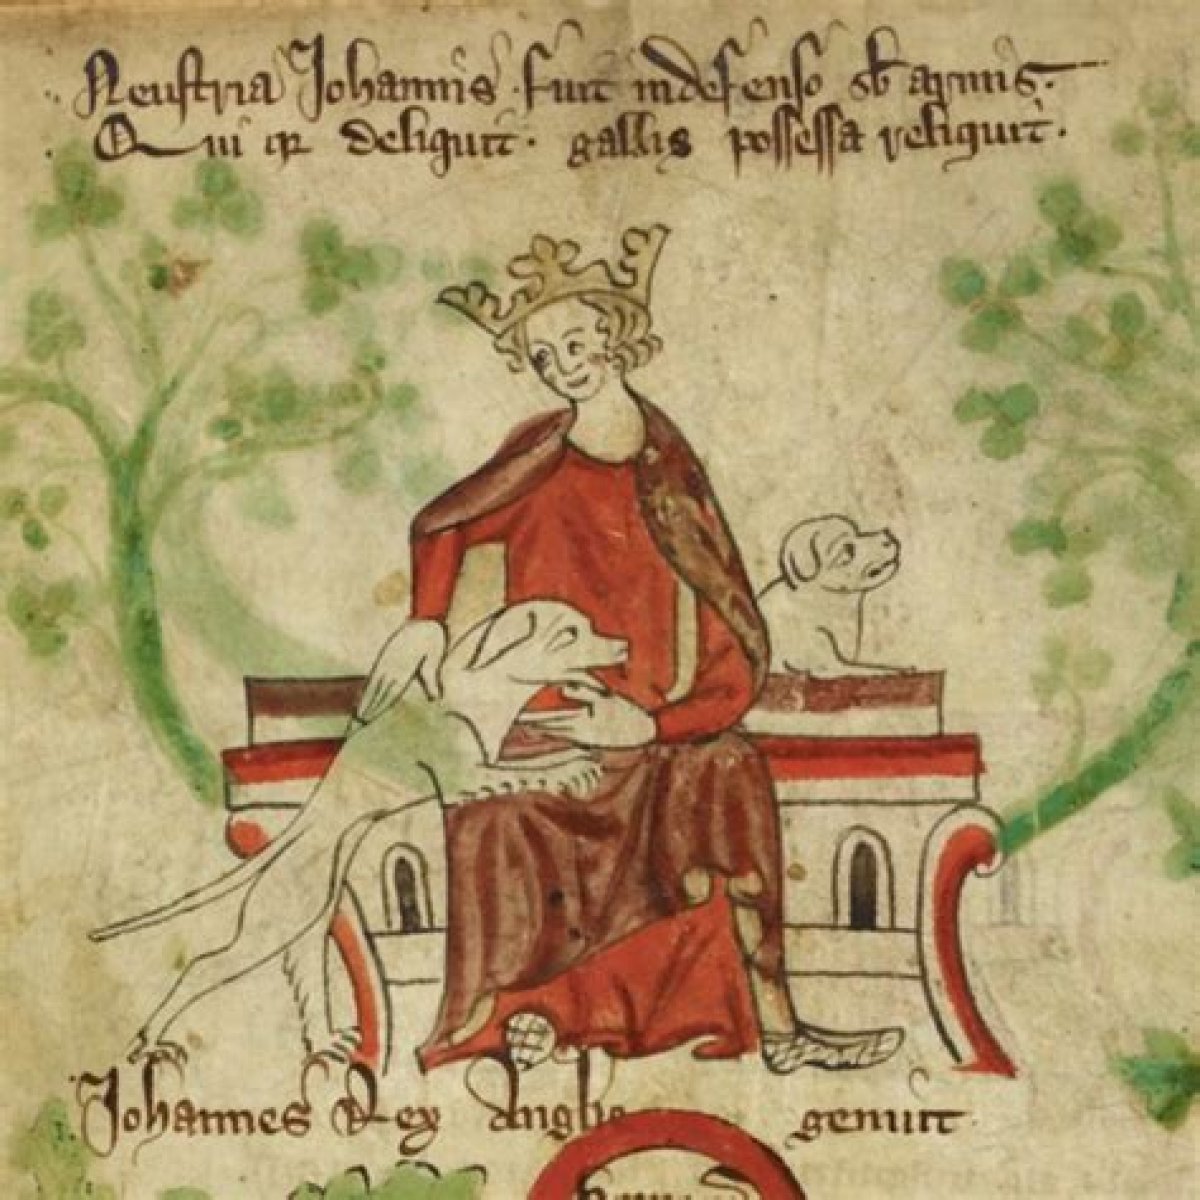 Neustria Johannis fuit indefenso sb armis.
Qui qr deliquit. gallis possessa reliquit.
Johannes Rex Anglie genuit